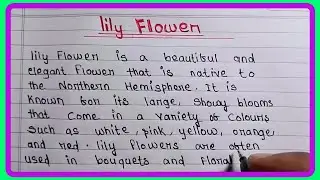 lily Flower
lily Flower is a beautiful and
elegant flower that is native to
the Northern Hemisphere. It is
known for its large, showy blooms
that come in a variety of colours
such as white, pink, yellow, orange,
and red. lily flowers are often
used in bouquets and floral